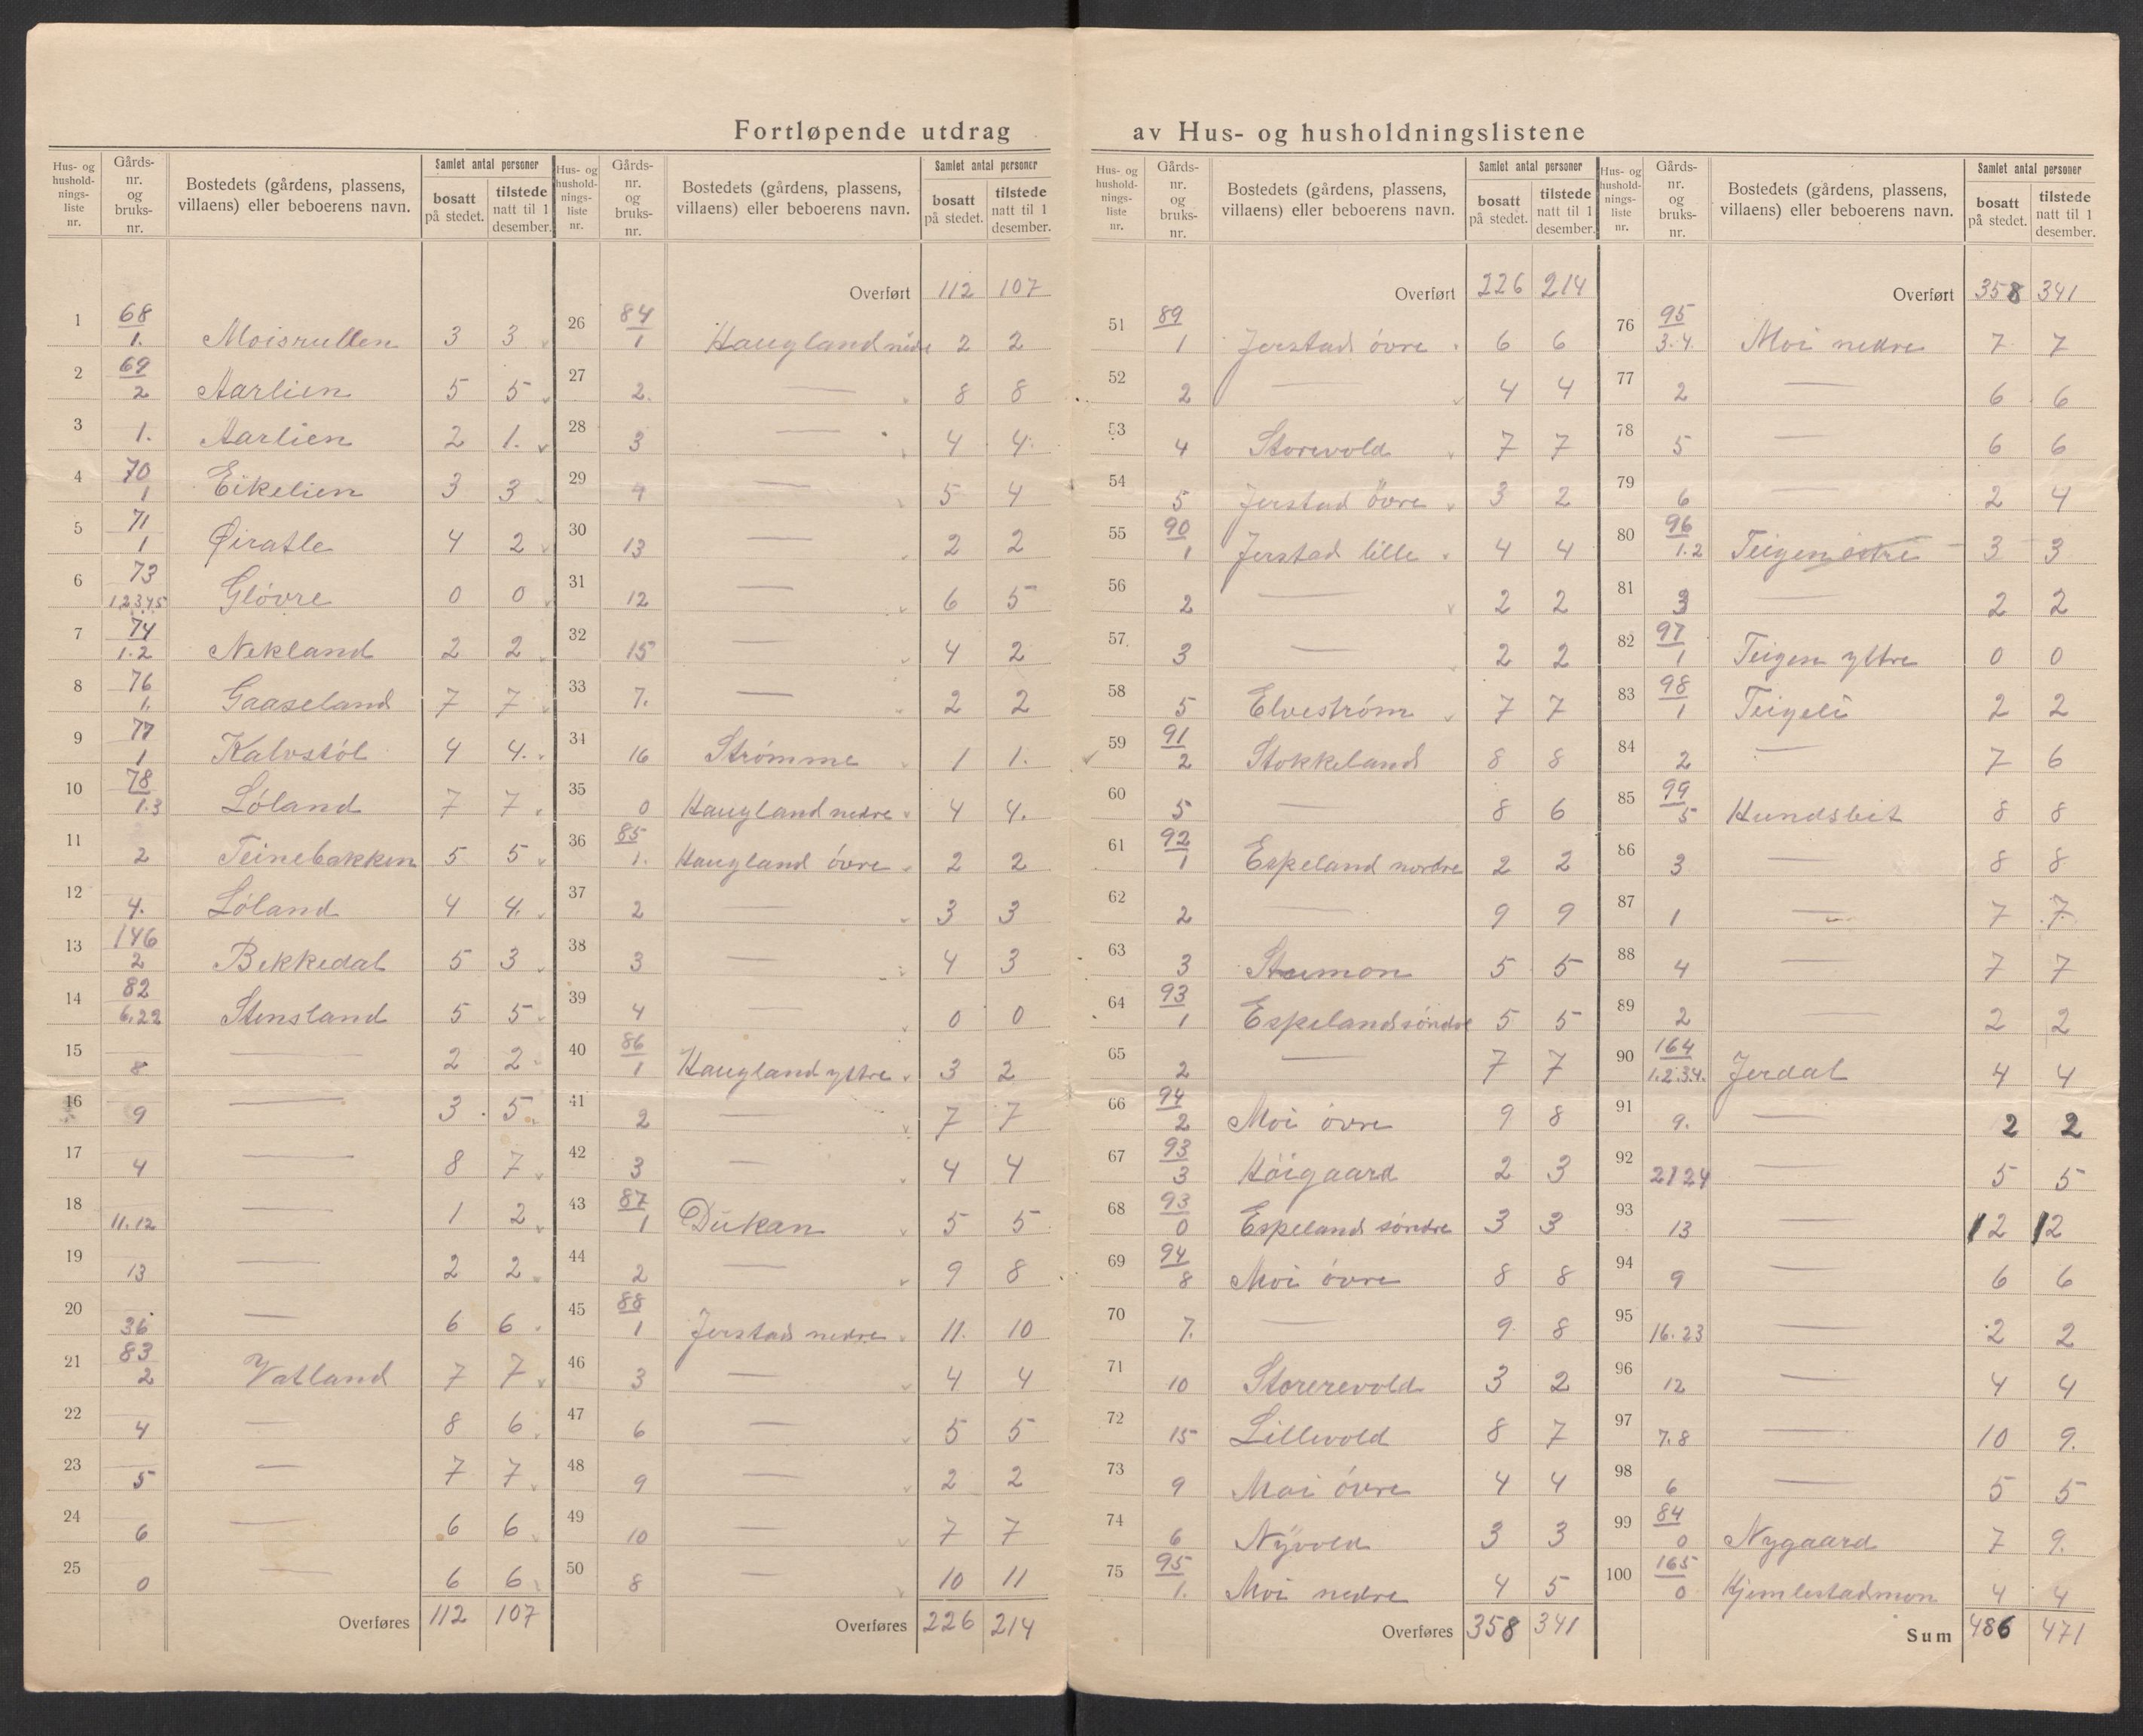 Fortløpende utdrag av Hus- og husholdningslistene
Hus- og husholdningsliste nr. Gårds-nr. og bruks-nr. Bostedets (gårdens, plassens, villaens) eller beboerens navn. Samlet antal personer bosatt på stedet. tilstede natt til 1 desember.
1 68/1. Moisrullen 3 3
2 69/2 Aarlien 5 5
3 1. Aarlien 2 1.
4 70/1 Eikelien 3 3
5 71/1 Øiratle 4 2
6 73/1.2.3.4.5 Gløvre 0 0
7 74/1.2 Nekland 2 2
8 76/1. Gaaseland 7 7
9 77/1 Kalvstøl 4 4.
10 78/1.3 Løland 7 7
11 2 Teinebakken 5 5
12 4. Løland 4 4.
13 146/2 Bekkedal 5 3
14 82/6.22 Stensland 5 5
15 8 — 2 2
16 9 — 3 5
17 4 — 8 7
18 11.12 — 1 2
19 13 — 2 2
20 36 — 6 6
21 83/2 Vatland 7 7
22 4 — 8 6
23 5 — 7 7
24 6 — 6 6
25 0 — 6 6
Overføres 112 107
Hus- og husholdnings-liste nr. Gårds-nr. og bruks-nr. Bostedets (gårdens, plassens, villaens) eller beboerens navn. Samlet antal personer bosatt på stedet. tilstede natt til 1 desember.
Overført 112 107
26 84/1 Haugland nedre 2 2
27 2. — 8 8
28 3 — 4 4.
29 4 — 5 4
30 13 — 2 2
31 12 — 6 5
32 15 — 4 2
33 7. — 2 2
34 16 Strømme 1 1.
35 0 Haugland nedre 4 4.
36 85/1. Haugland øvre 2 2
37 2 — 3 3
38 3 — 4 3
39 4 — 0 0
40 86/1 Haugland yttre 3 2
41 2 — 7 7
42 3 — 4 4
43 87/1 Dukan 5 5
44 2 — 9 8
45 88/1 Jerstad nedre 11. 10
46 3 — 4 4
47 6 — 5 5
48 9 — 2 2
49 10 — 7 7
50 8 — 10 11
Overføres 226 214
Hus- og husholdnings-liste nr. Gårds-nr. og bruks-nr. Bostedets (gårdens, plassens, villaens) eller beboerens navn. Samlet antal personer bosatt på stedet. tilstede natt til 1 desember.
Overført 226 214
51 89/1 Jerstad øvre 6 6
52 2 — 4 4
53 4 Storevold 7 7
54 5 Jerstad øvre 3 2
55 90/1 Jerstad lille 4 4
56 2 — 2 2
57 3 — 2 2
58 5 Elvestrøm 7 7
59 91/2 Stokkeland 8 8
60 5 — 8 6
61 92/1 Espeland nordre 2 2
62 2 — 9 9
63 3 5 5
64 93/1 Espeland søndre 5 5
65 2 — 7 7
66 94/2 Moi øvre 9 8
67 93/3 Høigaard 2 3
68 93/0 Espeland søndre 3 3
69 94/8 Moi øvre 8 8
70 7. — 9 8
71 10 Storerevold 3 2
72 15 Lillevold 8 7
73 9 Moi øvre 4 4
74 6 Nyvold 3 3
75 95/1. Moi nedre 4 5
Overføres 358 341
Hus- og husholdnings-liste nr. Gårds-nr. og bruks-nr. Bostedets (gårdens, plassens, villaens) eller beboerens navn. Samlet antal personer bosatt på stedet. tilstede natt til 1 desember.
Overført 358 341
76 95/3.4. Moi nedre 7 7
77 2 — 6 6
78 5 — 6 6
79 6 — 2 4
80 96/1.2 Teigen østre 3 3
81 3 — 2 2
82 97/1 Teigen yttre 0 0
83 98/1 Teigeli 2 2
84 2 — 7 6
85 99/5 Hundsbit 8 8
86 3 — 8 8
87 1 — 7 7.
88 4 — 7 7
89 2 — 2 2
90 164/1.2.3.4. Jerdal 4 4
91 9. — 2 2
92 2124 — 5 5
93 13 — 12 12
94 9 — 6 6
95 16.23 — 2 2
96 12 — 4 4
97 7.8 — 10 9.
98 6 — 5 5
99 84/0 Nygaard 7 9.
100 165/0 Hjemlestadmon 4 4
Sum 486 471